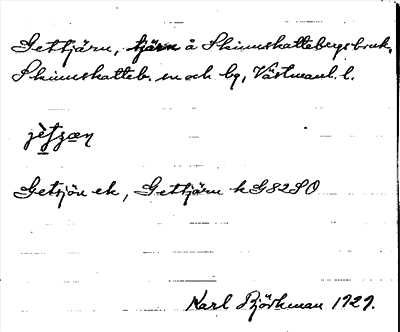 Gettjärn, tjärn å Skinnskattebergs bruk,
Skinnskatteb. sn och bg, Västmanl. l.
Getsjön ek, Gettjärn kG82SO
Karl Björkman 1929.